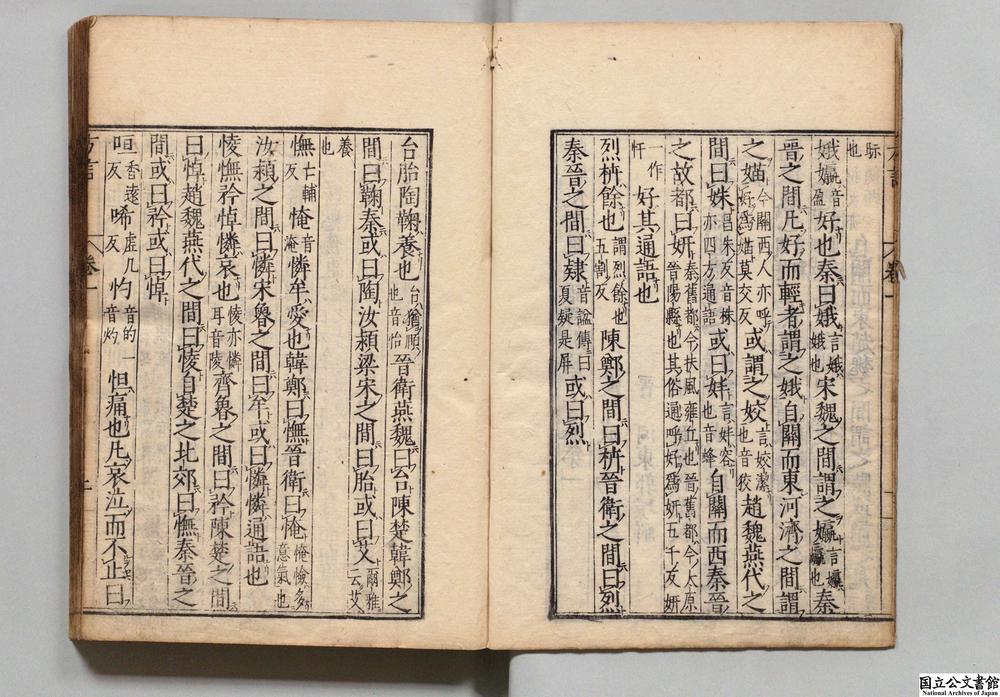 眎也
娥㜲音盈好也秦曰娥言娥娥也宋魏之間謂之㜲言㜲㜲也秦
晉之間凡好而輕者謂之娥自關而東河濟之間謂
之媌今關西人亦呼好為媌莫交反或謂之姣言姣潔也音狡趙魏燕代之
間曰姝昌朱反又音株亦四方通語或曰妦言妦容也音蜂自關而西秦晉
之故都曰妍秦舊都今扶風雍丘也晉舊都今太原晉陽縣也其俗通呼好為妍五千反妍
一作忓好其通語也
烈枿餘也謂烈餘也五割反陳鄭之間曰枿晉衛之間曰烈
秦晉之間曰肄音謚傳曰夏肄是屏或曰烈
卷一
台胎陶鞠養也台猶頤也音怡晉衛燕魏曰台陳楚韓鄭之
間曰鞠秦或曰陶汝潁梁宋之間曰胎或曰艾爾雅云艾
養也
憮亡輔反㤿音淹憐牟愛也韓鄭曰憮晉衛曰㤿㤿憸多意氣也
汝潁之間曰憐宋魯之間曰牟或曰憐憐通語也
㥄憮矜悼憐哀也㥄亦憐耳音陵齊魯之間曰矜陳楚之間
曰悼趙魏燕代之間曰㥄自楚之北郊曰憮秦晉之
間或曰矜或曰悼
咺香遠反唏虛几反灼音的一音灼怛痛也凡哀泣而不止曰
方言 卷一
国立公文書館
National Archives of Japan